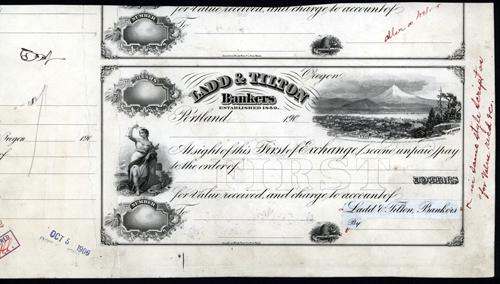 for Value received, and charge to account of
NUMBER
To
LADD & TILTON
Bankers
ESTABLISHED 1859.
Oregon
Portland 190
At sight of this First of Exchange (second unpaid) pay
to the order of
FIRST
DOLLARS
for Value received, and charge to account of
NUMBER
Ladd & Tilton, Bankers
To
By
Oregon 190
OCT 5 1906
in same style script as
for Value rec'd &c.